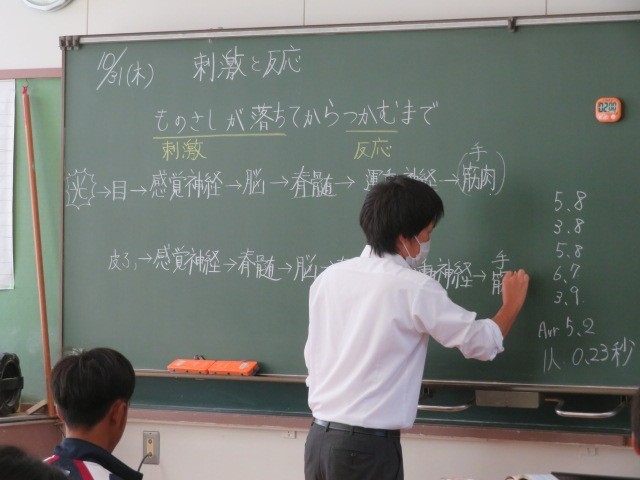 10/31(木) 刺激と反応
ものさしが落ちてからつかむまで
刺激 反応
光→目→感覚神経→脳→脊髄→運 神経→(手 筋肉)
皮ふ→感覚神経→脊髄→脳→ 神経→手 筋
5.8
3.8
5.8
6.7
3.9
Avr 5.2
1人 0.23秒
02:00